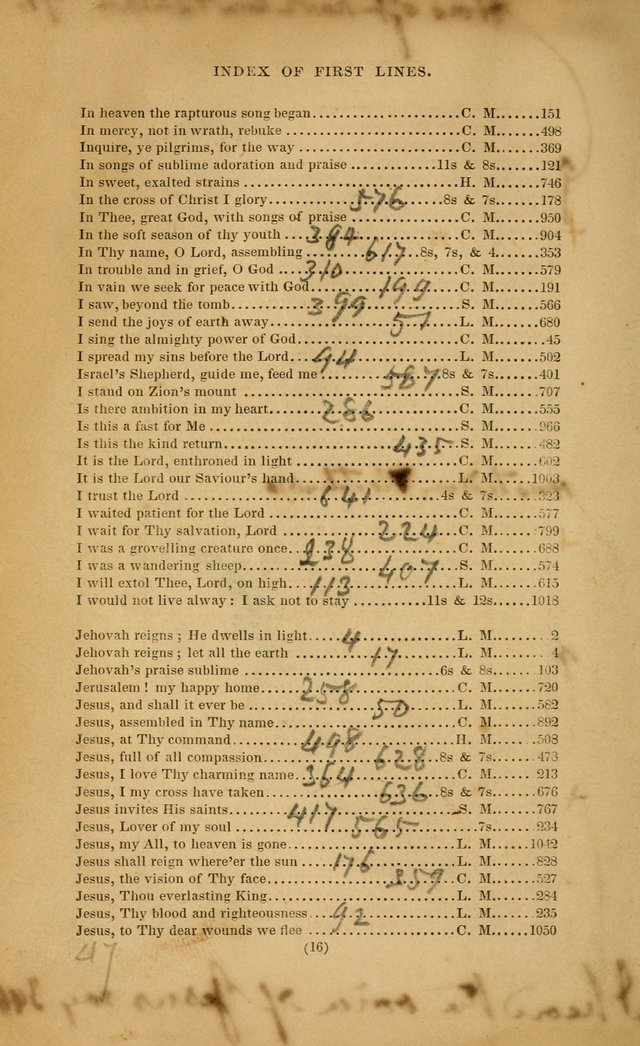 INDEX OF FIRST LINES.
In heaven the rapturous song began....................C. M.......151
In mercy, not in wrath, rebuke........................C. M.......498
Inquire, ye pilgrims, for the way.....................C. M.......369
In songs of sublime adoration and praise............11s & 8s.......121
In sweet, exalted strains.............................H. M.......746
In the cross of Christ I glory............576.......8s & 7s.......178
In Thee, great God, with songs of praise..............C. M.......950
In the soft season of thy youth....394................C. M.......904
In Thy name, O Lord, assembling........617..8s, 7s, & 4.......353
In trouble and in grief, O God....310.................C. M.......579
In vain we seek for peace with God........199.........C. M.......191
I saw, beyond the tomb............399.................S. M.......566
I send the joys of earth away.............51..........L. M.......680
I sing the almighty power of God......................C. M........45
I spread my sins before the Lord...94.................L. M.......502
Israel's Shepherd, guide me, feed me......587.8s & 7s.......401
I stand on Zion's mount...............................S. M.......707
Is there ambition in my heart.......286...............C. M.......555
Is this a fast for Me.................................S. M.......966
Is this the kind return...................435.........S. M.......482
It is the Lord, enthroned in light....................C. M.......602
It is the Lord our Saviour's hand.....................L. M.......1003
I trust the Lord..................641...............4s & 7s.......323
I waited patient for the Lord.........................C. M.......577
I wait for Thy salvation, Lord............224.........C. M.......799
I was a grovelling creature once...238................C. M.......688
I was a wandering sheep...................407.........S. M.......574
I will extol Thee, Lord, on high...113................L. M.......615
I would not live alway: I ask not to stay..........11s & 12s.......1018
Jehovah reigns; He dwells in light.....4..............L. M....... 2
Jehovah reigns; let all the earth.........17..........L. M....... 4
Jehovah's praise sublime............................6s & 8s.......103
Jerusalem! my happy home..........258.................C. M.......720
Jesus, and shall it ever be...............50..........L. M.......582
Jesus, assembled in Thy name..........................C. M.......892
Jesus, at Thy command.............498.................H. M.......508
Jesus, full of all compassion.............628.......8s & 7s.......473
Jesus, I love Thy charming name...364.................C. M.......213
Jesus, I my cross have taken..............636.......8s & 7s.......676
Jesus invites His saints..........417.................S. M.......767
Jesus, Lover of my soul...................565............7s.......234
Jesus, my All, to heaven is gone......................L. M.......1042
Jesus shall reign where'er the sun.....176............L. M.......828
Jesus, the vision of Thy face.............359.........C. M.......527
Jesus, Thou everlasting King..........................L. M.......284
Jesus, Thy blood and righteousness.....92.............L. M.......235
Jesus, to Thy dear wounds we flee.....................C. M.......1050
(16)
47
of Jesus